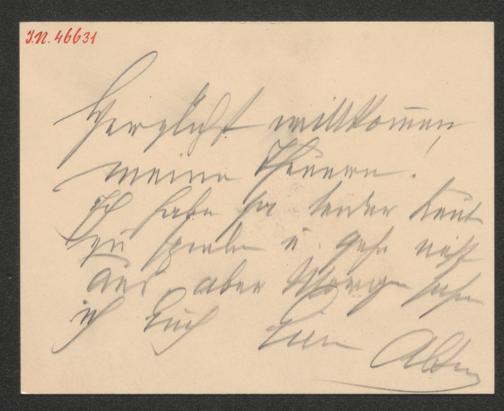 I.N. 46631
Herzlichst willkommen,
meine Theuern!
Ich habe ja leider heut
zu spielen u. gehe nicht
aus aber Morgen sehe
ich Euch Eure Alte